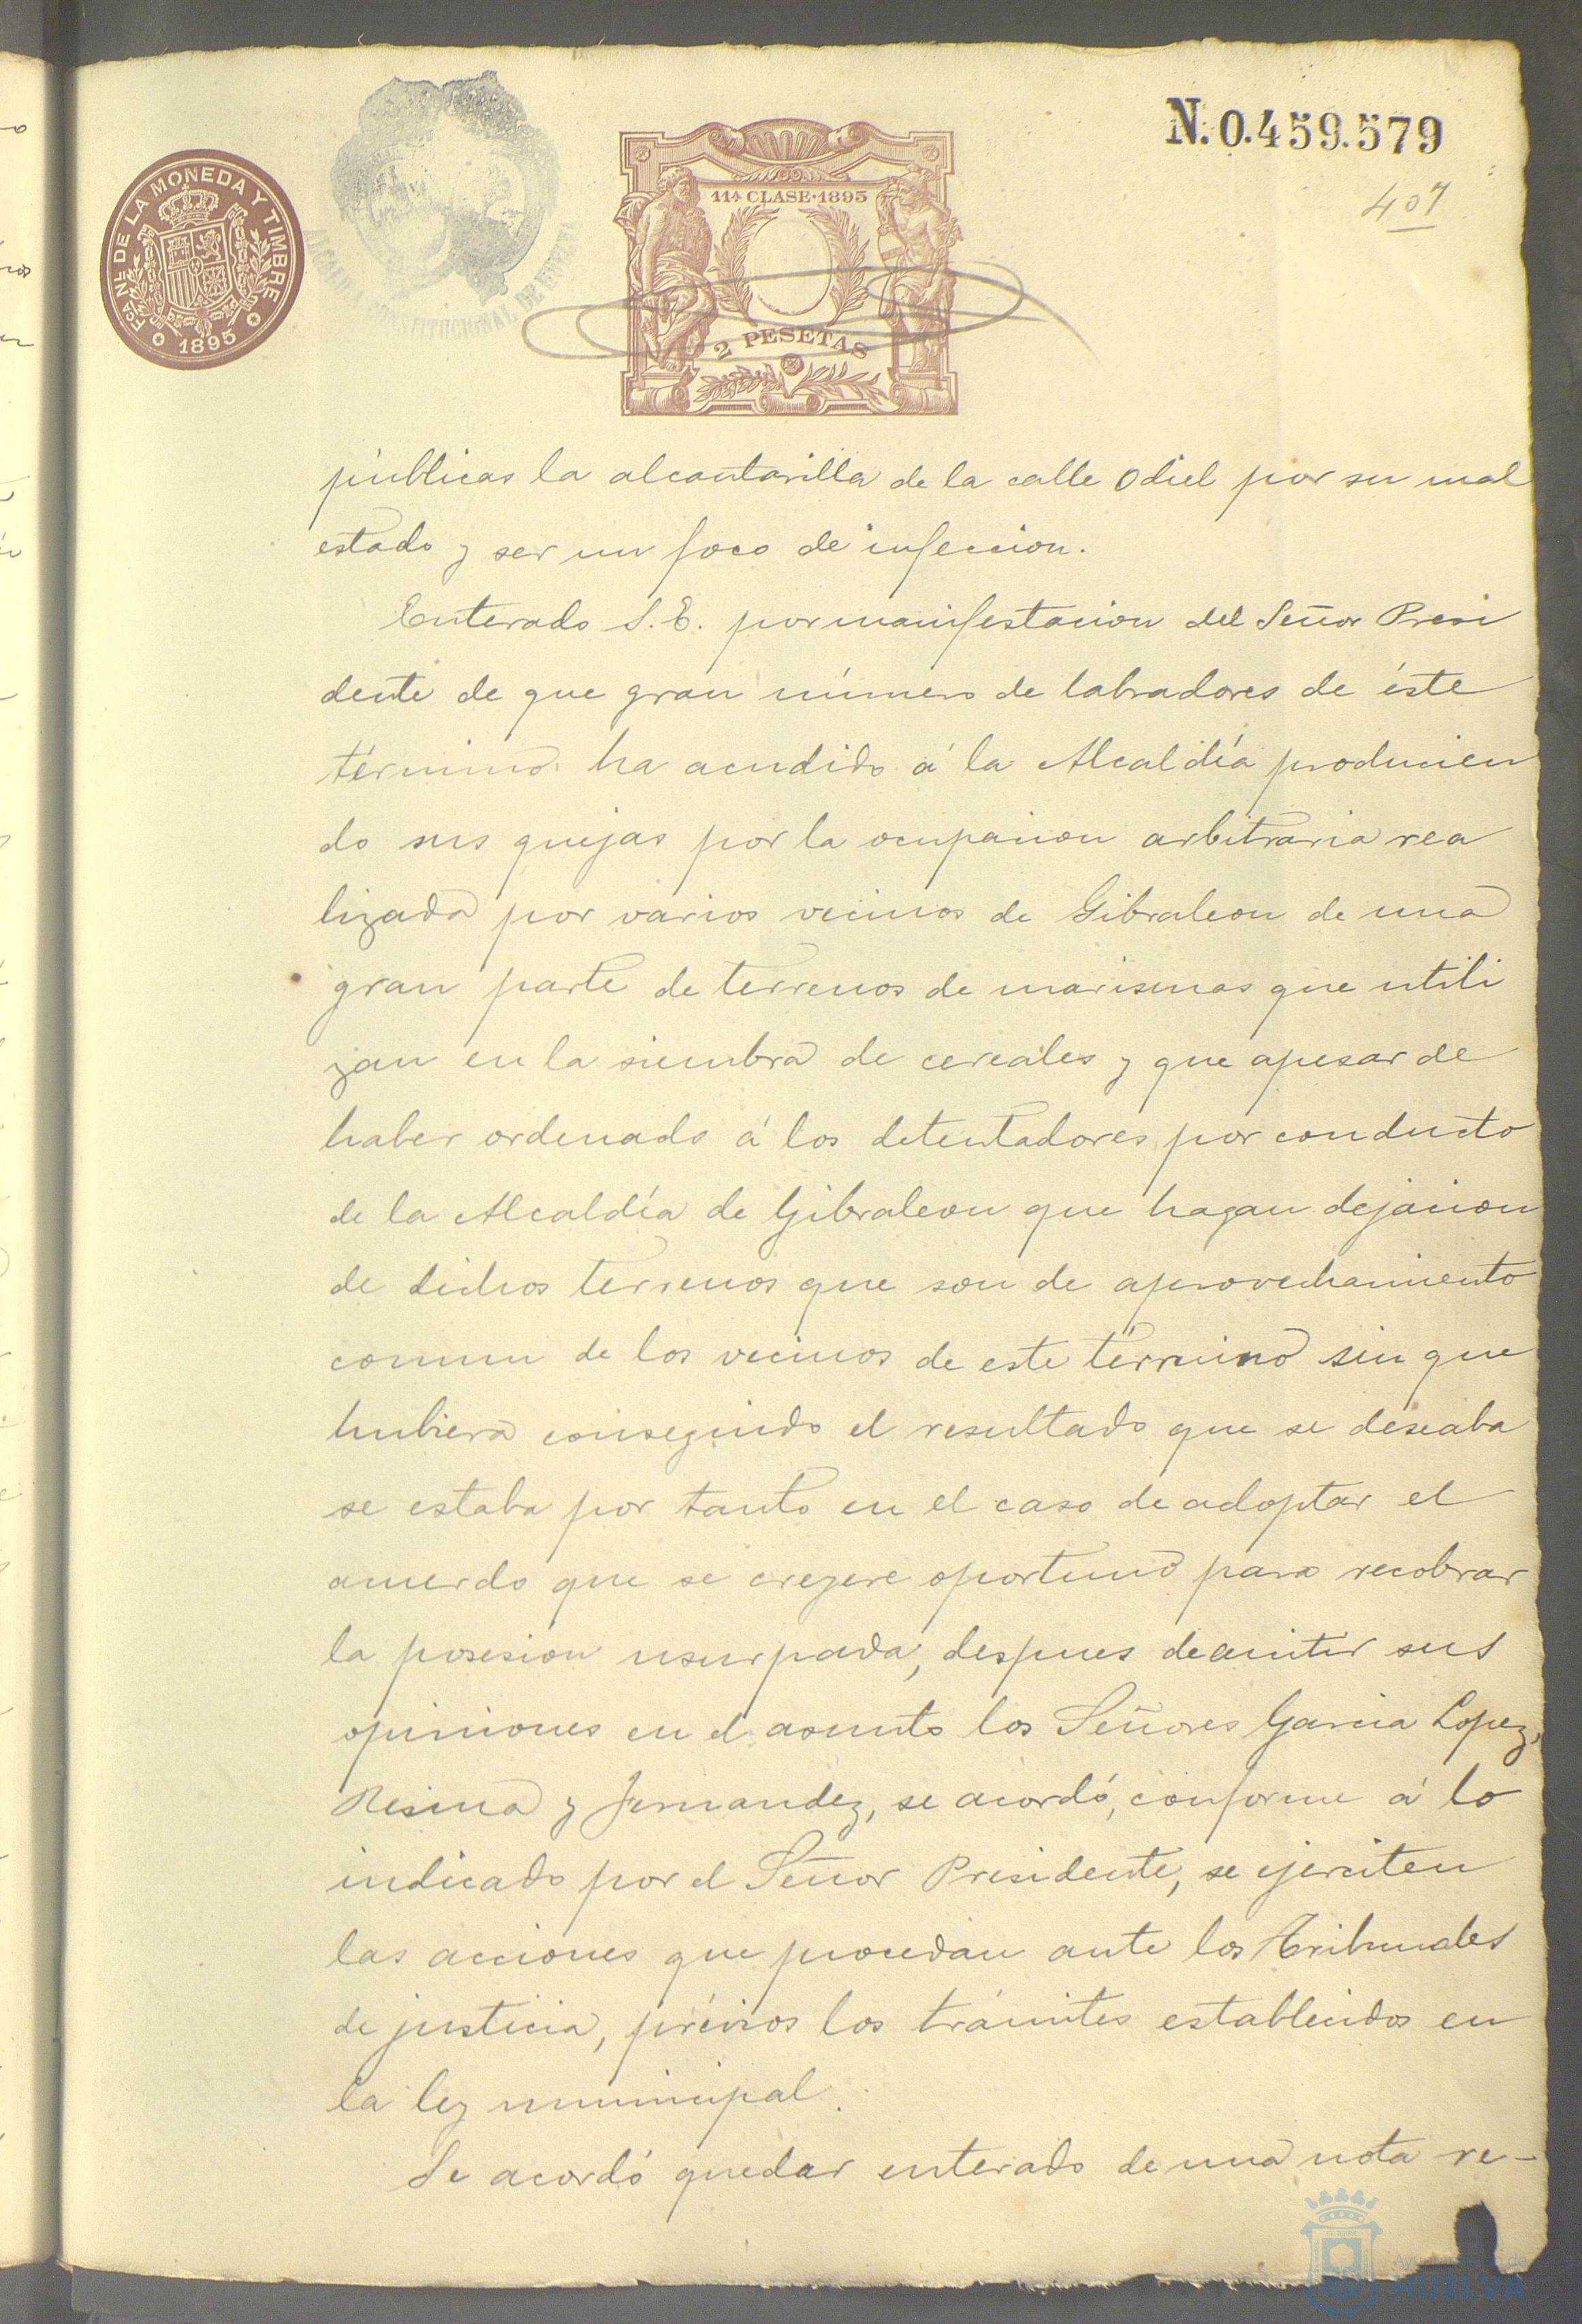 N. 0.459.579
407
FCA. NL. DE LA MONEDA Y TIMBRE
1895
CONSTITUCIONAL DE
11ª CLASE·1895
2 PESETAS
públicas la alcantarilla de la calle Odiel por su mal
estado y ser un foco de infeccion.
Enterado S.E. por manifestacion del Señor Presi
dente de que gran número de labradores de éste
término ha acudido á la Alcaldía producien
do sus quejas por la ocupacion arbitraria rea
lizada por varios vecinos de Gibraleon de una
gran parte de terrenos de marismas que utili
zan en la siembra de cereales y que apesar de
haber ordenado á los detentadores por conducto
de la Alcaldía de Gibraleon que hagan dejacion
de dichos terrenos que son de aprovechamiento
comun de los vecinos de este término sin que
hubiera conseguido el resultado que se deseaba
se estaba por tanto en el caso de adoptar el
acuerdo que se creyere oportuno para recobrar
la posesion usurpada, despues de emitir sus
opiniones en el asunto los Señores Garcia Lopez,
Resina y Fernandez, se acordó, conforme á lo
indicado por el Señor Presidente, se ejerciten
las acciones que procedan ante los Tribunales
de justicia, prévios los trámites establecidos en
la ley municipal.
Se acordó quedar enterado de una nota re-
Ayuntamiento de
HUELVA